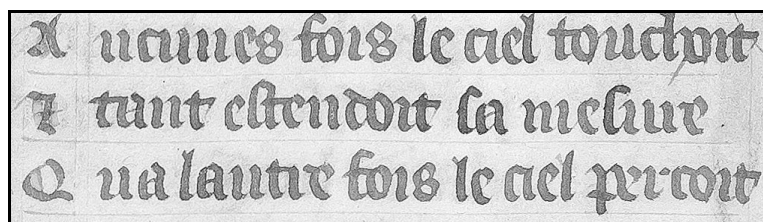 A ucunes fois le ciel touchoit
⁊ tant estendoit sa mesure
Q ua lautre fois le ciel percoit